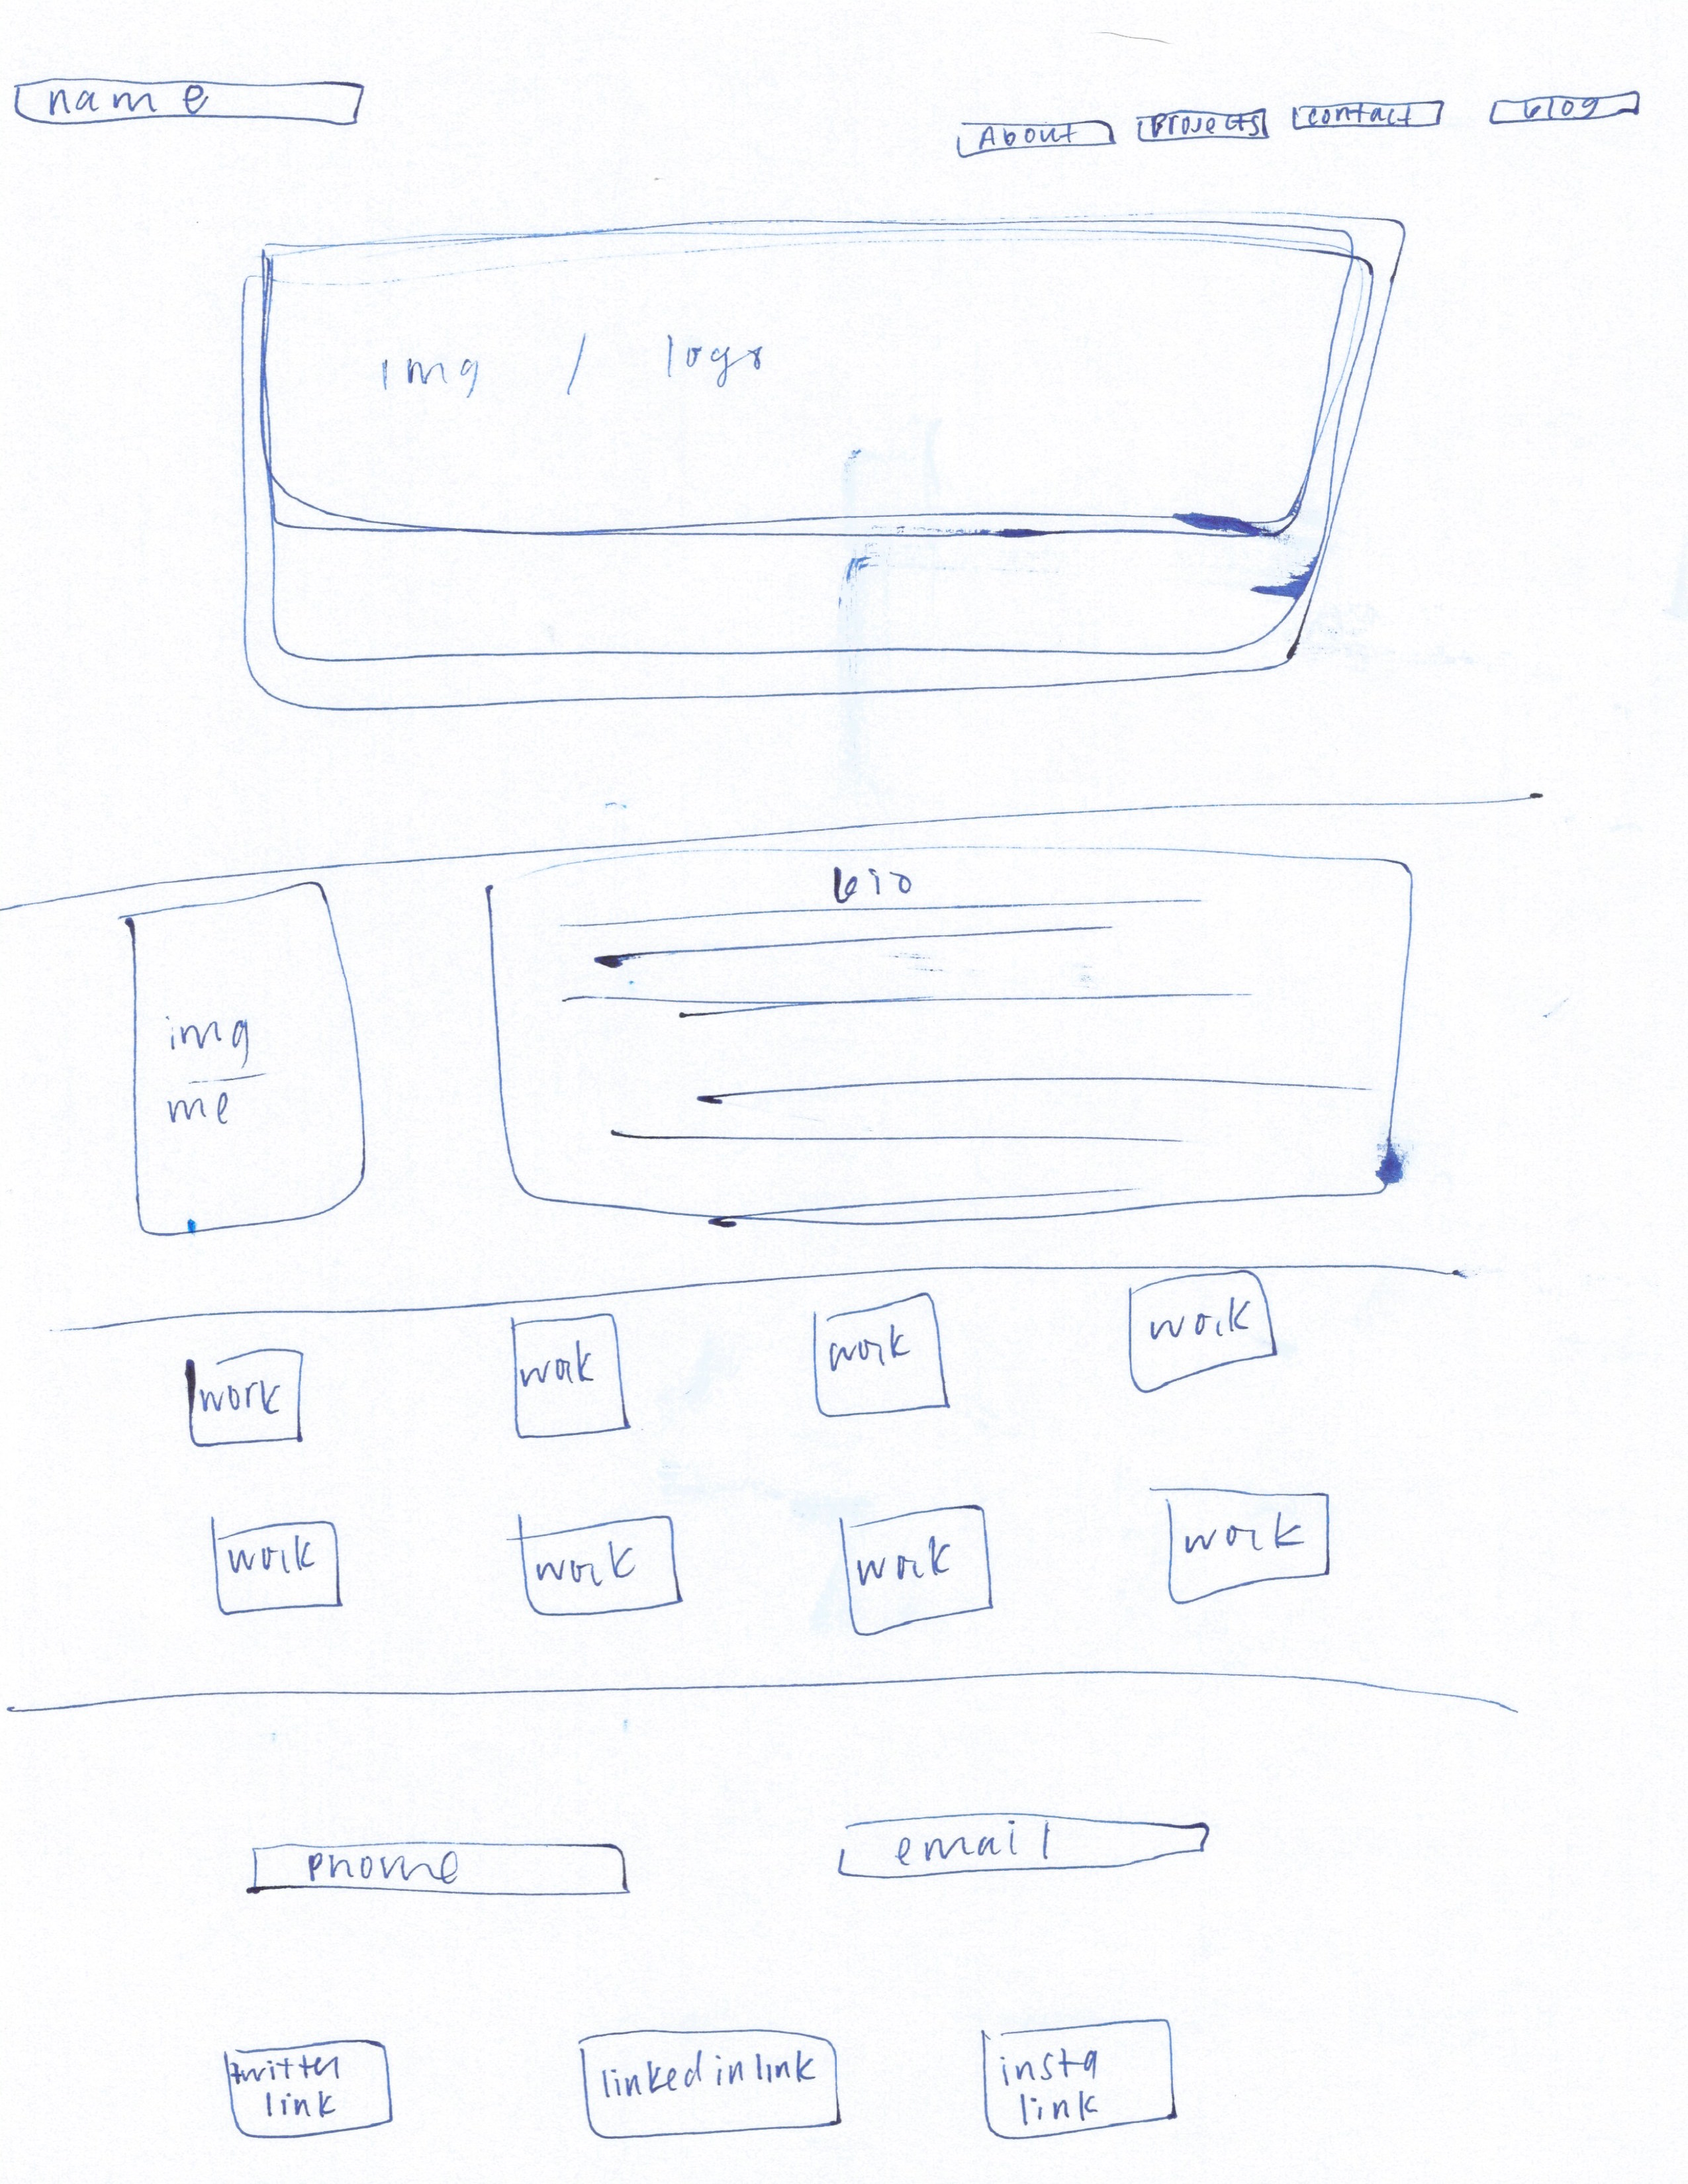 name
About projects contact blog
img / logo
bio
img
me
work work work work
work work work work
phone email
twitter
link
linkedin link
insta
link